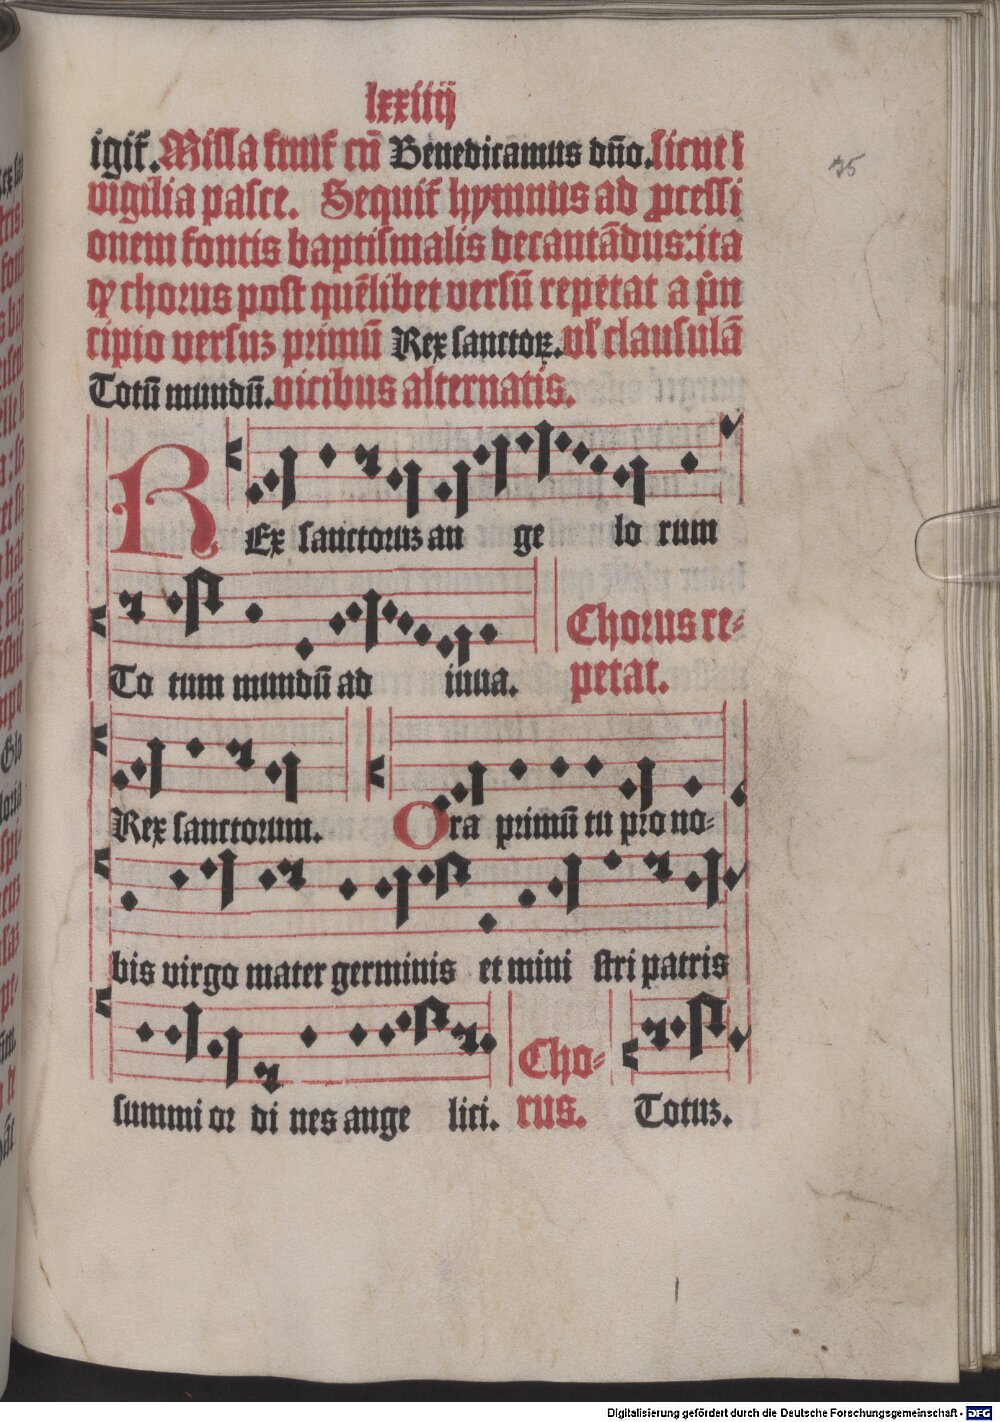 lxxiiij
75
igit᷑. Missa finit᷑ cū Benedicamus dño. sicut ī
vigilia pasce. Sequit᷑ hymnus ad ꝓcessi
onem fontis baptismalis decantādus: ita
ꝙ chorus post quēlibet versū repetat a p̍n
cipio versuꝫ primū Rex sanctoꝝ. vl̕ clausulā
Totū mundū. vicibus alternatis.
REx sanctoruꝫ an ge lo rum
To tum mundū ad iuua. Chorus re⸗
petat.
Rex sanctorum. Ora primū tu pro no⸗
bis virgo mater germinis et mini stri patris
summi or di nes ange lici. Cho⸗
rus. Totuꝫ.
Digitalisierung gefördert durch die Deutsche Forschungsgemeinschaft - DFG